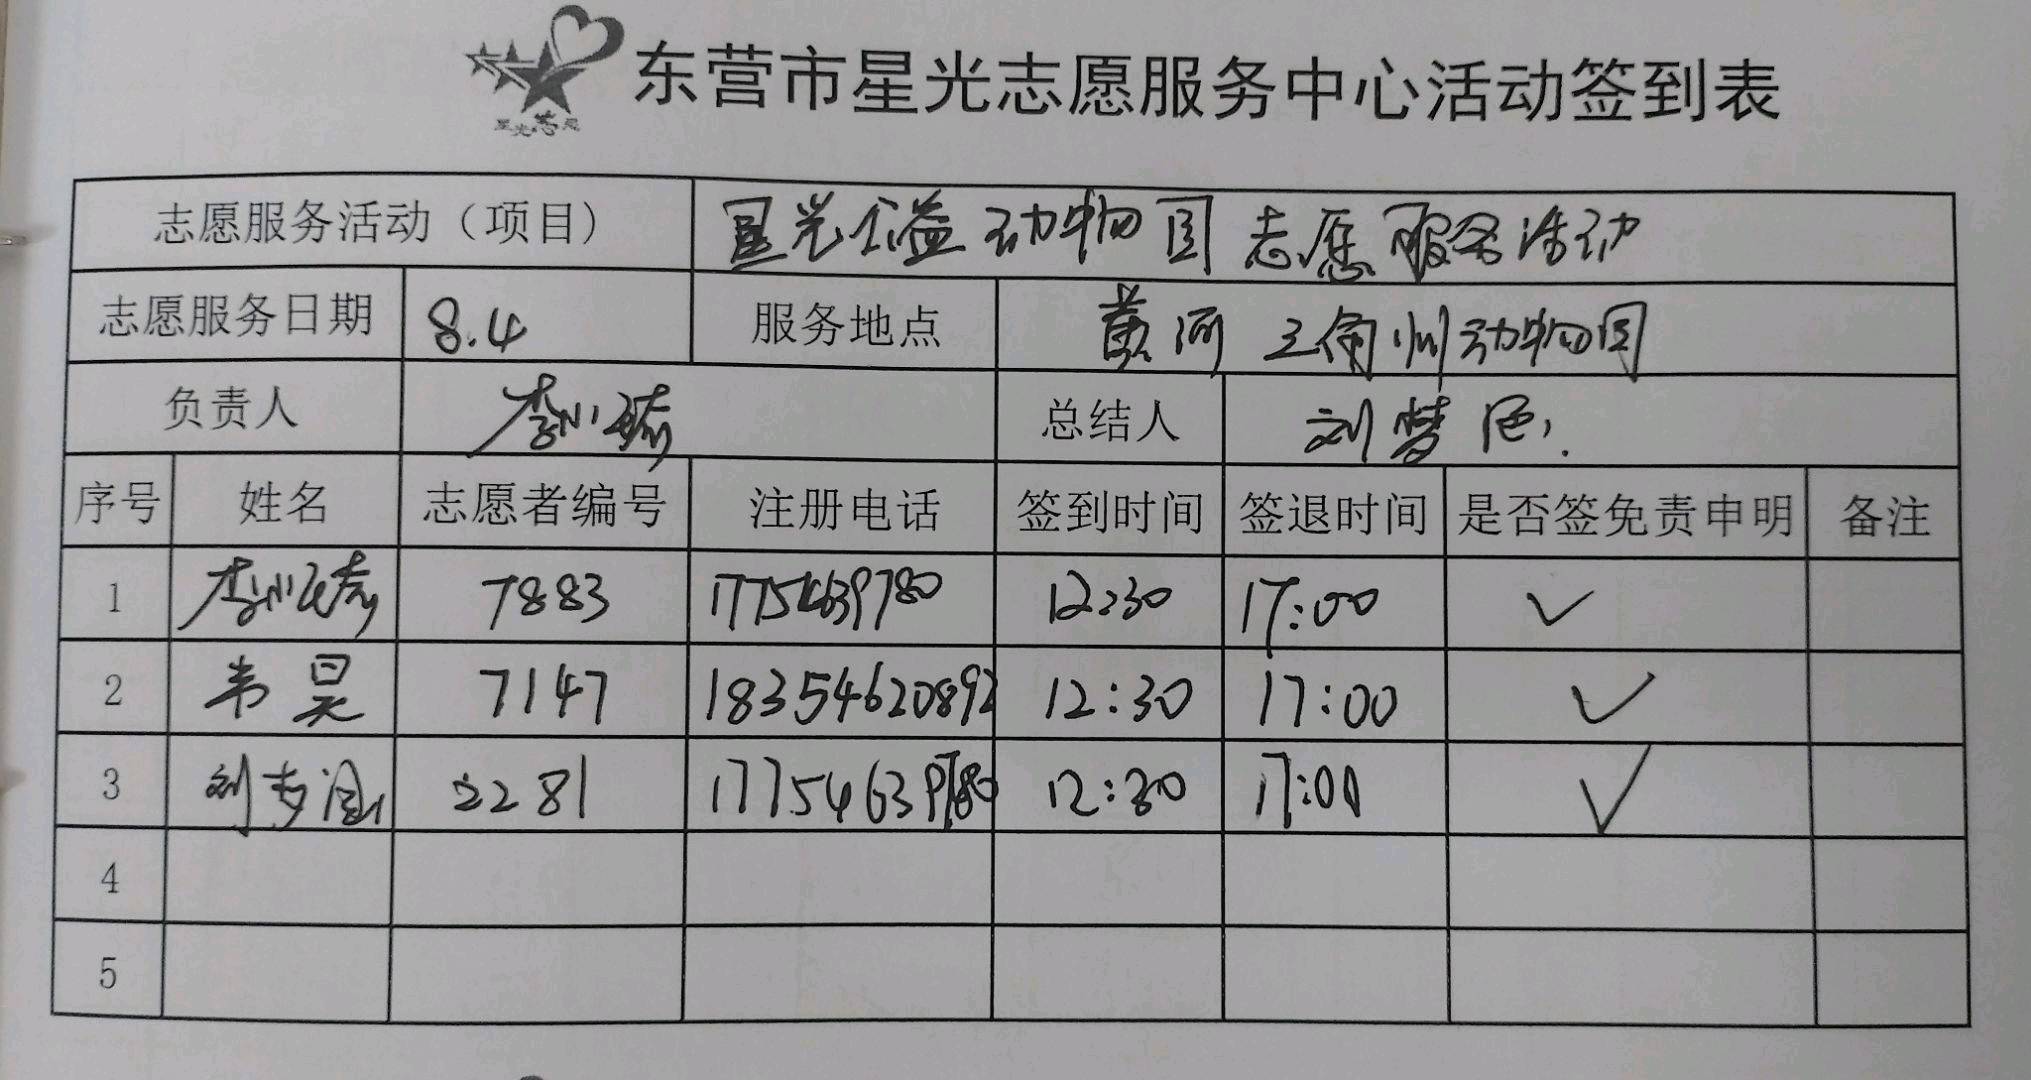 东营市星光志愿服务中心活动签到表
志愿服务活动（项目） 星光公益动物园志愿服务活动
志愿服务日期 8.4 服务地点 黄河三角洲动物园
负责人 李小 总结人 刘梦
序号 姓名 志愿者编号 注册电话 签到时间 签退时间 是否签免责申明 备注
1 李小 7883 17754639780 12:30 17:00 ✓
2 韦昊 7147 18354620892 12:30 17:00 ✓
3 刘梦 2281 17754639780 12:30 17:00 ✓
4
5